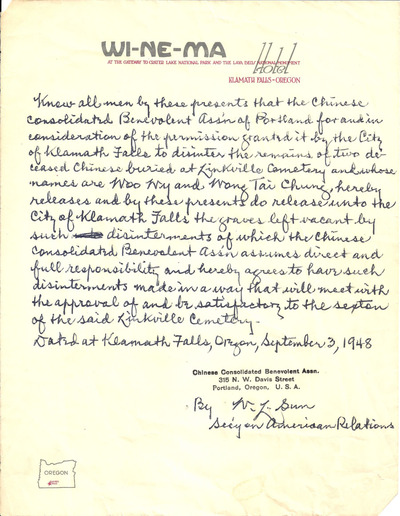 WI-NE-MA
Hotel
AT THE GATEWAY TO CRATER LAKE NATIONAL PARK AND THE LAVA BEDS NATIONAL MONUMENT
KLAMATH FALLS-OREGON
Know all men by these presents that the Chinese
Consolidated Benevolent Ass'n of Portland for and in
consideration of the permission granted it by the City
of Klamath Falls to disinter the remains of two de-
ceased Chinese buried at Linkville Cemetery and whose
names are Woo Wy and Wong Tai Chung, hereby
releases and by these presents do release unto the
City of Klamath Falls the graves left vacant by
such disinterments of which the Chinese
Consolidated Benevolent Ass'n assumes direct and
full responsibility and hereby agrees to have such
disinterments made in a way that will meet with
the approval of and be satisfactory to the sexton
of the said Linkville Cemetery.
Dated at Klamath Falls, Oregon, September 3, 1948
Chinese Consolidated Benevolent Assn.
315 N. W. Davis Street
Portland, Oregon, U. S. A.
By W. L. Sum
Sec'y on American Relations
OREGON